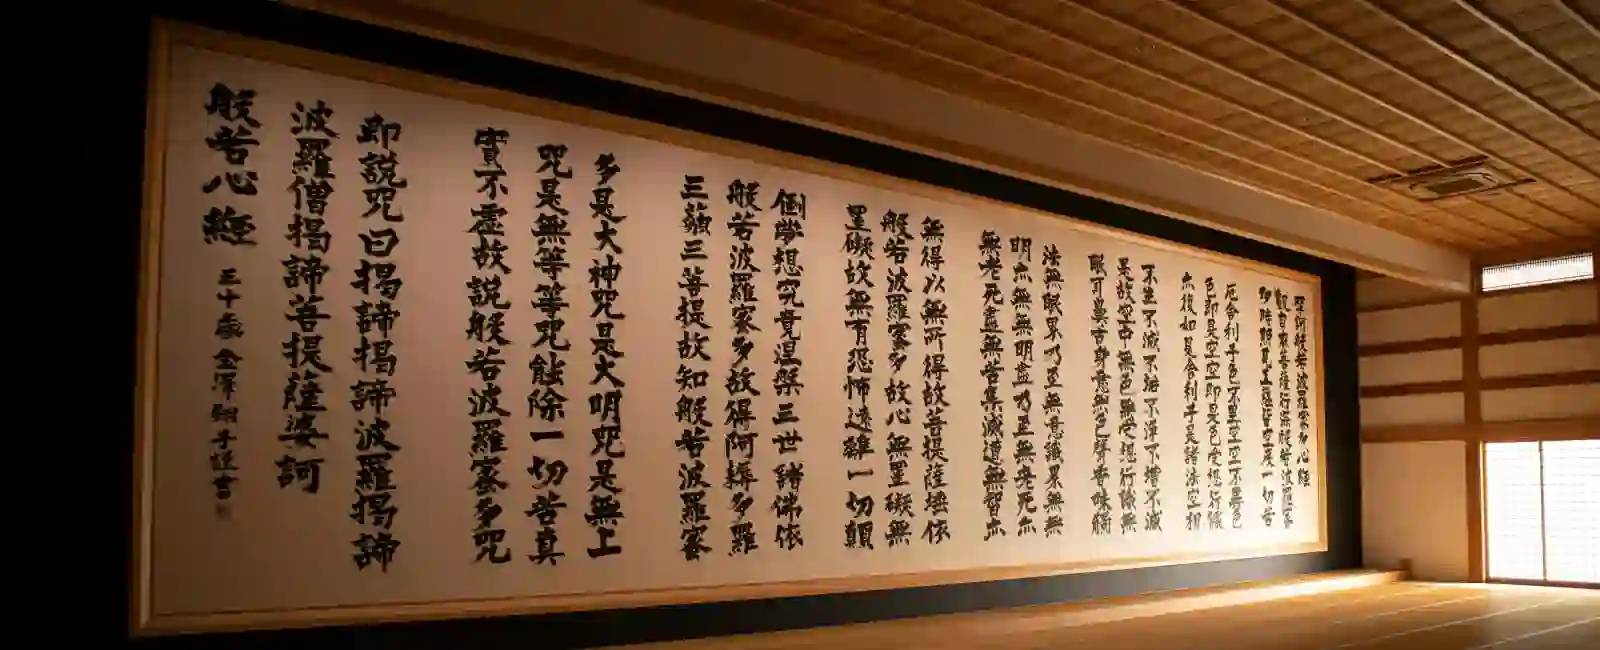 摩訶般若波羅蜜多心經
觀自在菩薩行深般若波羅蜜
多時照見五蘊皆空度一切苦
厄舎利子色不異空空不異色
色即是空空即是色受想行識
亦復如是舎利子是諸法空相
不生不滅不垢不浄不増不減
是故空中無色無受想行識無
眼耳鼻舌身意無色聲香味觸
法無眼界乃至無意識界無無
明亦無無明盡乃至無老死亦
無老死盡無苦集滅道無智亦
無得以無所得故菩提薩埵依
般若波羅蜜多故心無罣礙無
罣礙故無有恐怖遠離一切顛
倒夢想究竟涅槃三世諸佛依
般若波羅蜜多故得阿耨多羅
三藐三菩提故知般若波羅蜜
多是大神咒是大明咒是無上
咒是無等等咒能除一切苦真
實不虚故説般若波羅蜜多咒
即説咒曰掲諦掲諦波羅掲諦
波羅僧掲諦菩提薩婆訶
般若心經 三十歳 金澤翔子謹書